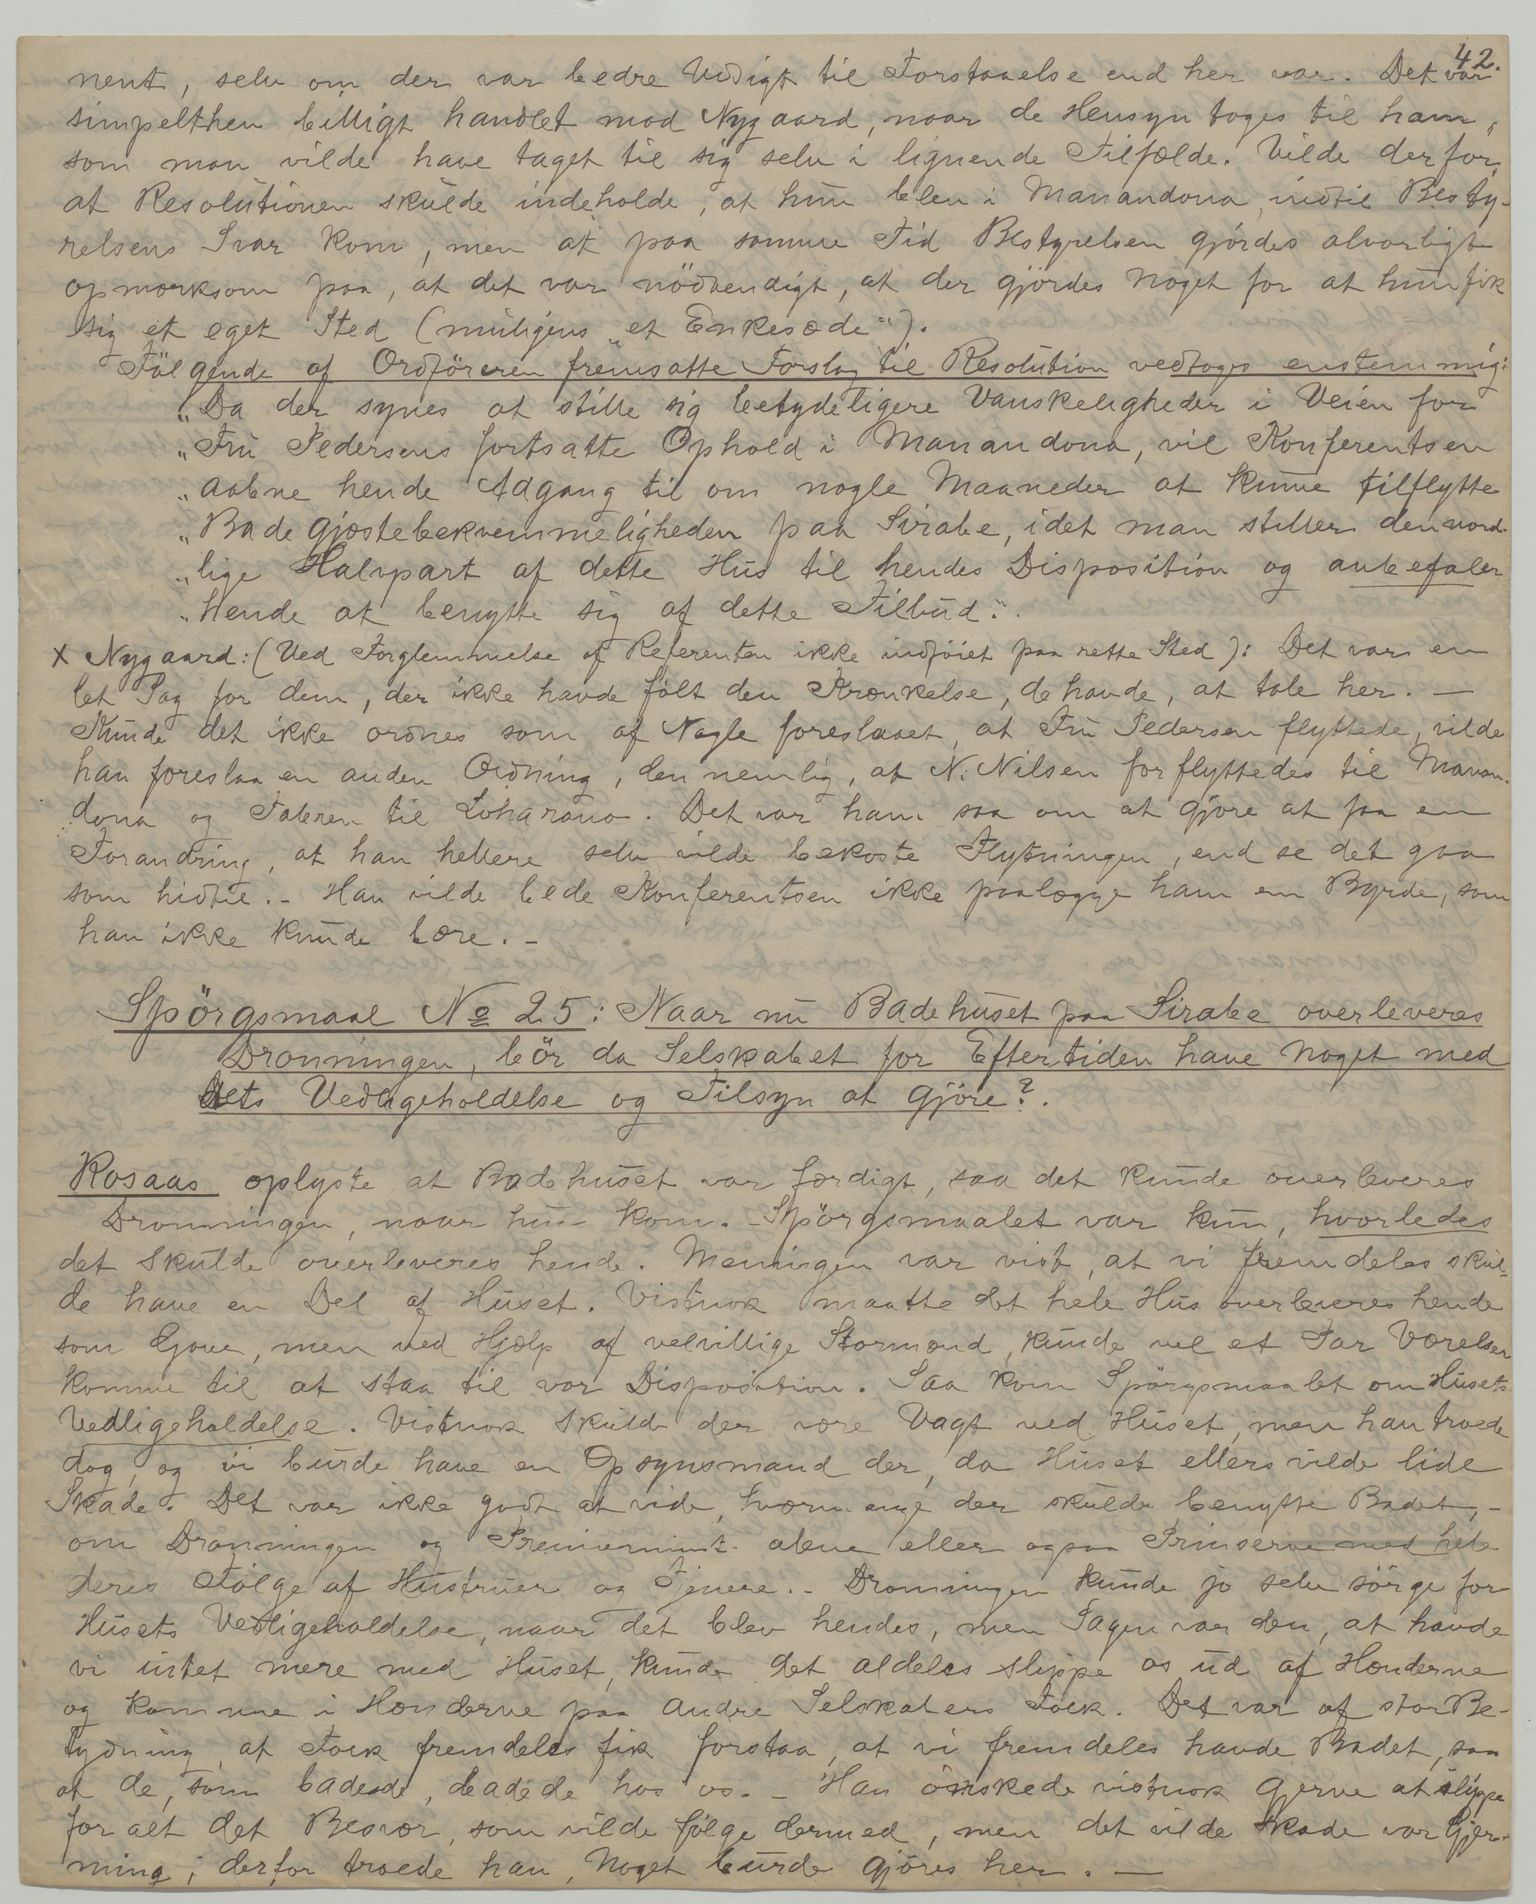 42.
nent, selv om der var bedre Udsigt til Forstaaelse end her var. Det var
simpelthen billigt handlet mod Nygaard, naar de Hensyn toges til ham,
som man vilde have taget til sig selv i lignende Tilfælde. Vilde derfor,
at Resolutionen skulde indeholde, at hun blev i Manandona, indtil Besty-
relsens Svar kom, men at paa samme Tid Bestyrelsen gjördes alvorligt
opmærksom paa, at det var nödvendigt, at der gjördes noget for at hun fik
sig et eget Sted (muligens „et Enkesæde“).
Fölgende af Ordföreren fremsatte Forslag til Resolution vedtoges enstemmig:
„Da der synes at stille sig betydeligere Vanskeligheder i Veien for
„Fru Pedersens fortsatte Ophold i Manandona, vil Konferentsen
„aabne hende Adgang til om nogle Maaneder at kunne tilflytte
„Badegjæstebekvemmeligheden paa Sirabe, idet man stiller den nord-
„lige Halvpart af dette Hus til hendes Disposition og anbefaler
„hende at benytte sig af dette Tilbud.“
x Nygaard: (Ved Forglemmelse af Referenten ikke indföiet paa rette Sted): Det var en
let Sag for dem, der ikke havde fölt den Krænkelse, de havde, at tale her. —
Kunde det ikke ordnes som af Nogle foreslaaet, at Fru Pedersen flyttede, vilde
han foreslaa en anden Ordning, den nemlig, at N. Nilsen forflyttedes til Manan-
dona og Taleren til Loharano. Det var ham saa om at gjøre at faa en
Forandring, at han hellere selv vilde bekoste Flytningen, end se det gaa
som hidtil. - Han vilde bede Konferentsen ikke paalægge ham en Byrde, som
han ikke kunde bære. -
Spörgsmaal No 25: Naar nu Badehuset paa Sirabe overleveres
Dronningen, bör da Selskabet for Eftertiden have noget med
dets Vedligeholdelse og Tilsyn at gjöre?.
Rosaas oplyste at Badehuset var færdigt, saa det kunde overleveres
Dronningen, naar hun kom. - Spörgsmaalet var kun, hvorledes
det skulde overleveres hende. Meningen var vist, at vi fremdeles skul-
de have en Del af Huset. Vistnok maatte det hele Hus overleveres hende
som Gave, men ved Hjælp af velvillige Stormænd, kunde vel et Par Værelser
komme til at staa til vor Disposition. Saa kom Spörgsmaalet om Husets
Vedligeholdelse. Vistnok skulde der være Vagt ved Huset, men han troede
dog, og vi burde have en Opsynsmand der, da Huset ellers vilde lide
Skade. Det var ikke godt at vide, hvormange der skulde benytte Badet, -
om Dronningen og Premiermint. alene eller ogsaa Prinserne med hele
deres Fölge af Hustruer og Tjenere. - Dronningen kunde jo selv sörge for
Husets Vedligeholdelse, naar det blev hendes, men Sagen var den, at havde
vi intet mere med Huset, kunde det aldeles slippe os ud af Hænderne
og komme i Hænderne paa andre Selskabers Folk. Det var af stor Be-
tydning, at Folk fremdeles fik forstaa, at vi fremdeles havde Badet, saa
at de, som badede, badede hos os. - Han önskede vistnok gjerne at slippe
for alt det Besvær, som vilde fölge dermed, men det vilde skade vor Gjer-
ning; derfor troede han, noget burde gjöres her. —